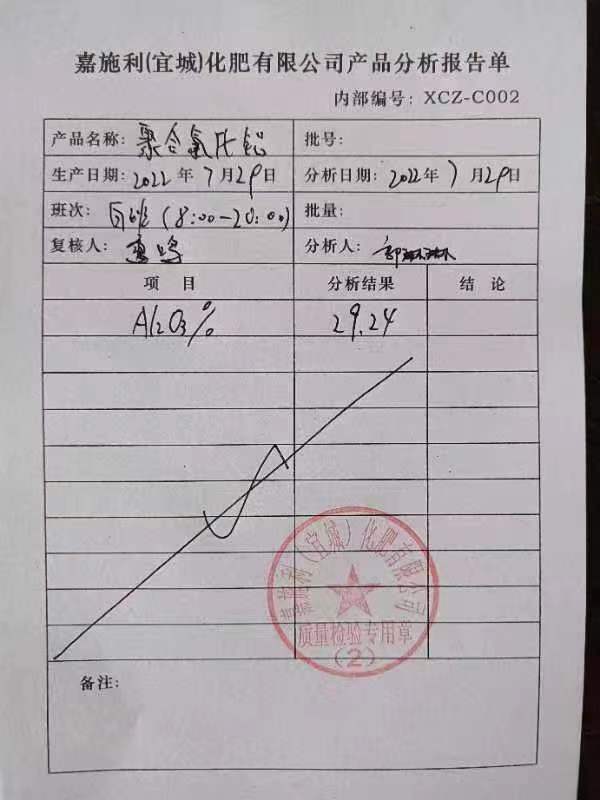 嘉施利(宜城)化肥有限公司产品分析报告单
内部编号：XCZ-C002
产品名称：聚合氯化铝 批号：
生产日期：2022年7月29日 分析日期：2022年7月29日
班次：白班(8:00-20:00) 批量：
复核人： 分析人：郭琳琳
项 目 分析结果 结 论
Al2O3% 29.24
嘉施利(宜城)化肥有限公司
质量检验专用章
(2)
备注：